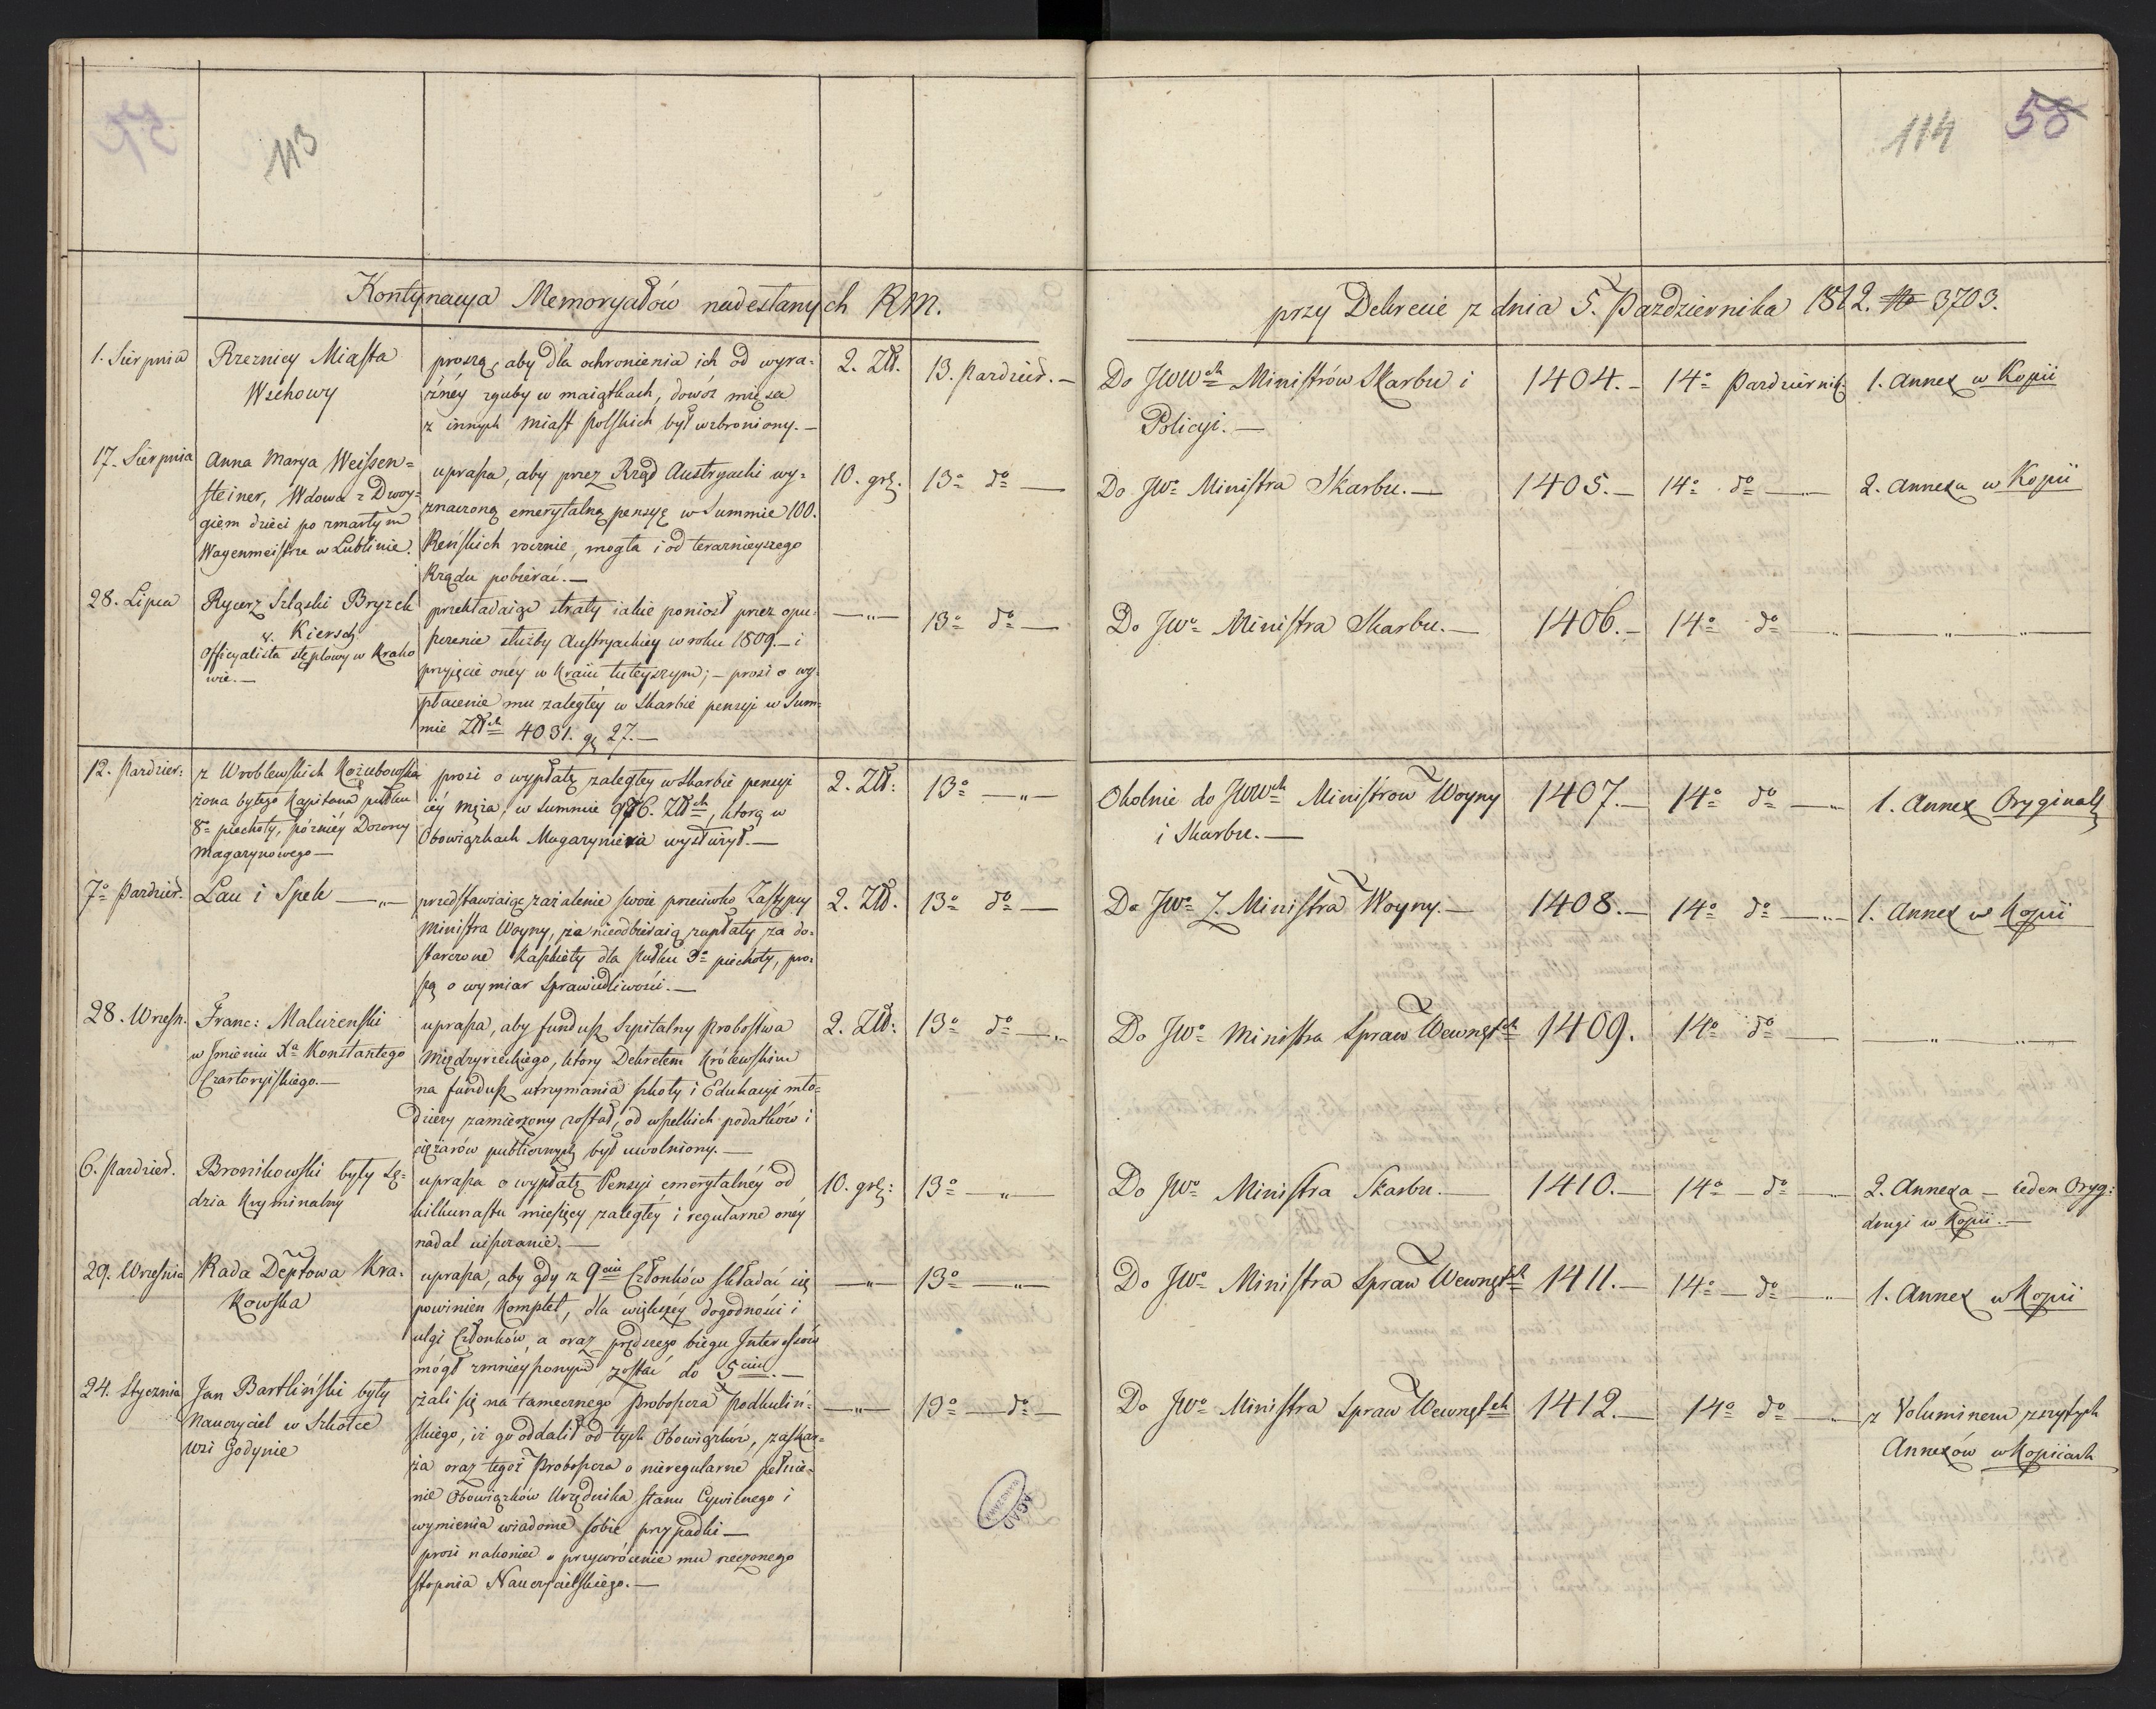 113
114 58
Kontynacya Memoryałów nadesłanych RM. przy Dekrecie z dnia 5. Pazdziernika 1812. No 3703.
1. Sierpnia
Rzeznicy Miasta
Wschowy
proszą, aby dla ochronienia ich od wyra-
źnéy zguby w maiątkach, dowóz mięsa
z innych miast polskich był wzbroniony.—
2. Złł.
13. Pazdzier.—
Do JWWch Ministrów Skarbu i
Policyi.—
1404.—
14o Pazdziernik
1. Annex w Kopii
17. Sierpnia
Anna Marya Weissen=
steiner, Wdowa z Dwoy-
giem dzieci po zmarłym
Wagenmeistrze w Lublinie.
uprasza, aby przez Rząd Austryacki wy-
znaczoną emerytalną pensyę w Summie 100.
Reńskich rocznie, mogła i od teraznieyszego
Rządu pobierać.—
10. grs.
13o do —
Do JWo Ministra Skarbu.—
1405.—
14o do —
2. Annexa w Kopii
28. Lipca
Rycerz Szląski Bryzch
v. Kiersch
Officyalista stęplowy w Krako
wie.—
przekładaiąc straty iakie poniosł przez opu-
szczenie służby Austryackiey w roku 1809.— i
przyięcie onéy w Kraiu tuteyszym;— prosi o wy-
płacenie mu zaległéy w Skarbie pensyi w Sum-
mie Złłch 4031. gs 27.—
—„—
13o do —
Do JWo Ministra Skarbu.—
1406.—
14o do
—„—„—
12. Pazdzier:
z Wroblewskich Kozubowska
żona byłego Kapitana pułku
8o piechoty, późniéy Dozorcy
Magazynowego—
prosi o wypłatę zaległey w Skarbie pensyi
iéy męża, w Summie 976. Złłch, ktorą w
Obowiązkach Magazyniera wysłużył.—
2. Złł:
13o —„—
Okolnie do JWWch Ministrow Woyny
i Skarbu.—
1407.—
14o do —
1. Annex Oryginal
7o Pazdzier.
Lau i Spek —„—
przedstawiaiąc zażalenie swoie przeciwko Zastępcy
Ministra Woyny, że nieodbieraią zapłaty za do-
starczone Kaszkiety dla Pułku 3o piechoty, pro-
szą o wymiar Sprawiedliwości.—
2. Złł.
13o do —
Do JWo Z. Ministra Woyny.—
1408.—
14o do —„—
1. Annex w Kopii
28. Wrześn.
Franc: Maluzenski
w Imieniu Xa Konstantego
Czartoryiskiego.—
uprasza, aby fundusz Szpitalny Probostwa
Międzyrzeckiego, ktory Dekretem Królewskim
na fundusz utrzymania szkoły i Edukacyi mło-
dzieży zamierzony został, od wszelkich podatków i
ciężarów publicznych był uwolniony.—
2. Złł:
13o do —„
Do JWo Ministra Spraw Wewnętch
1409.
14o do —
—„—„—
6. Pazdzier.
Bronikowski były Sę-
dzia Kryminalny
uprasza o wypłatę Pensyi emerytalnéy od
kilkunastu miesięcy zaległéy i regularne onéy
nadal uiszczanie.—
10. grs:
13o —„—
Do JWo Ministra Skarbu.—
1410.—
14o — do —
2. Annexa — ieden Oryg:
drugi w Kopii.—
29. Września
Rada Deptowa Kra-
kowska
uprasza, aby gdy z 9ciu Członków składać się
powinien Komplet, dla większéy dogodności i
ulgi Członków, a oraz prędszego biegu Interessów
mógł zmnieyszonym zostać do 5ciu.—
—„—
13o —„—
Do JWo Ministra Spraw Wewnętch
1411.—
14o — do —
1. Annex w Kopii
24. Stycznia
Jan Bartliński były
Nauczyciel w Szkołce
wsi Godynie
żali się na tamecznego Proboszcza Podkuliń-
skiego, iż go oddalił od tych Obowiązków, zaskar-
ża oraz tegoż Proboszcza o nieregularne pełnie-
nie Obowiązków Urzędnika stanu Cywilnego i
wymienia wiadome sobie przypadki—
prosi nakoniec o przywrócenie mu rzeczonego
stopnia Nauczycielskiego.—
—„—
13o — do —
Do JWo Ministra Spraw Wewnętch
1412.—
14o do —
z Voluminem zszytych
Annexów w Kopiiach
AGAD
WARSZAWA